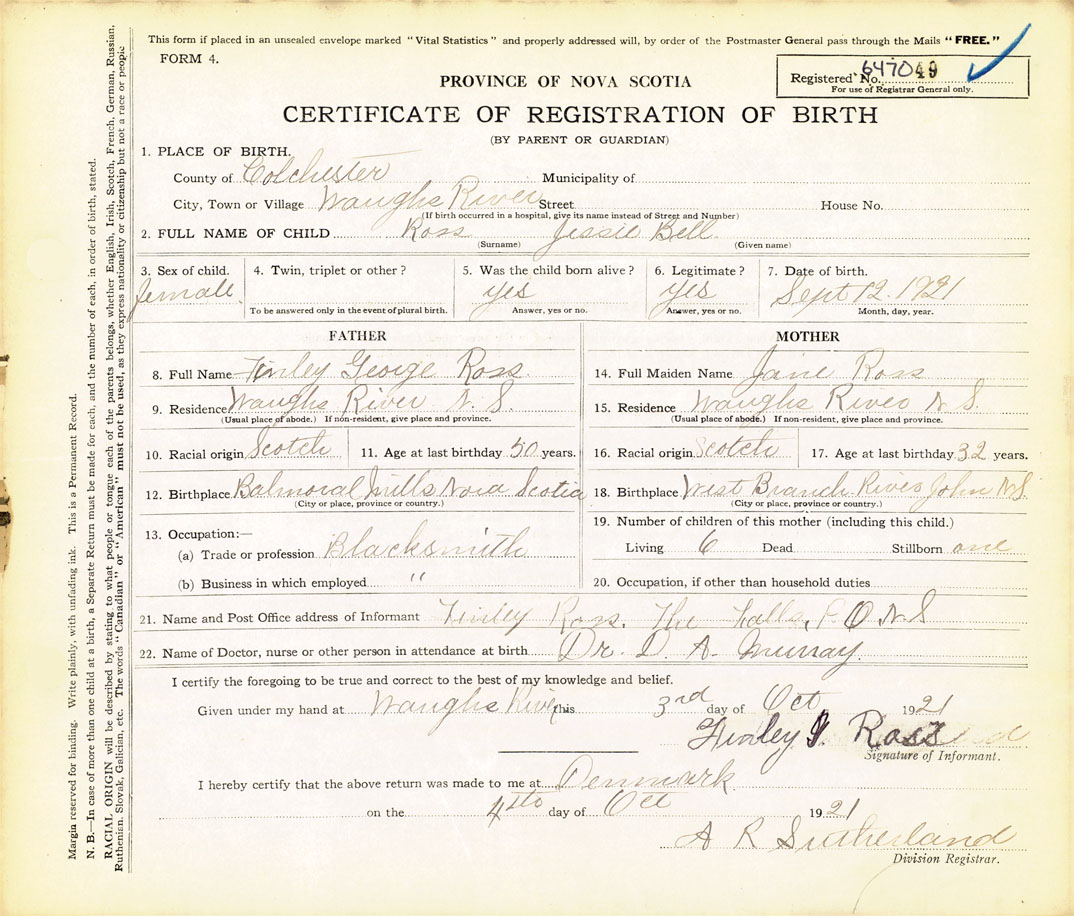 This form if placed in an unsealed envelope marked "Vital Statistics" and properly addressed will, by order of the Postmaster General pass through the Mails "FREE."
FORM 4.
PROVINCE OF NOVA SCOTIA
Registered No. 647049
For use of Registrar General only.
CERTIFICATE OF REGISTRATION OF BIRTH
(BY PARENT OR GUARDIAN)
1. PLACE OF BIRTH.
County of Colchester Municipality of
City, Town or Village Waughs River Street House No.
(If birth occurred in a hospital, give its name instead of Street and Number)
2. FULL NAME OF CHILD Ross Jessie Bell
(Surname) (Given name)
3. Sex of child. 4. Twin, triplet or other? 5. Was the child born alive? 6. Legitimate? 7. Date of birth.
female yes yes Sept 12. 1921
To be answered only in the event of plural birth. Answer, yes or no. Answer, yes or no. Month, day, year.
FATHER MOTHER
8. Full Name Finley George Ross 14. Full Maiden Name Jane Ross
9. Residence Waughs River N.S. 15. Residence Waughs River N.S.
(Usual place of abode.) If non-resident, give place and province. (Usual place of abode.) If non-resident, give place and province.
10. Racial origin Scotch 11. Age at last birthday 50 years. 16. Racial origin Scotch 17. Age at last birthday 32 years.
12. Birthplace Balmoral Mills Nova Scotia 18. Birthplace West Branch River John N.S.
(City or place, province or country.) (City or place, province or country.)
13. Occupation:— 19. Number of children of this mother (including this child.)
(a) Trade or profession Blacksmith Living 6 Dead Stillborn one
(b) Business in which employed " 20. Occupation, if other than household duties
21. Name and Post Office address of Informant Finley Ross. The Falls, P O N S
22. Name of Doctor, nurse or other person in attendance at birth Dr. D. A. Murray.
I certify the foregoing to be true and correct to the best of my knowledge and belief.
Given under my hand at Waughs River this 3rd day of Oct 1921
Finley G. Ross
Signature of Informant.
I hereby certify that the above return was made to me at Denmark
on the 4th day of Oct 1921
A R Sutherland
Division Registrar.
Margin reserved for binding. Write plainly, with unfading ink. This is a Permanent Record.
N. B.—In case of more than one child at a birth, a Separate Return must be made for each, and the number of each, in order of birth, stated.
RACIAL ORIGIN will be described by stating to what people or tongue each of the parents belongs, whether English, Irish, Scotch, French, German, Russian,
Ruthenian, Slovak, Galician, etc. The words "Canadian" or "American" must not be used, as they express nationality or citizenship but not a race or people